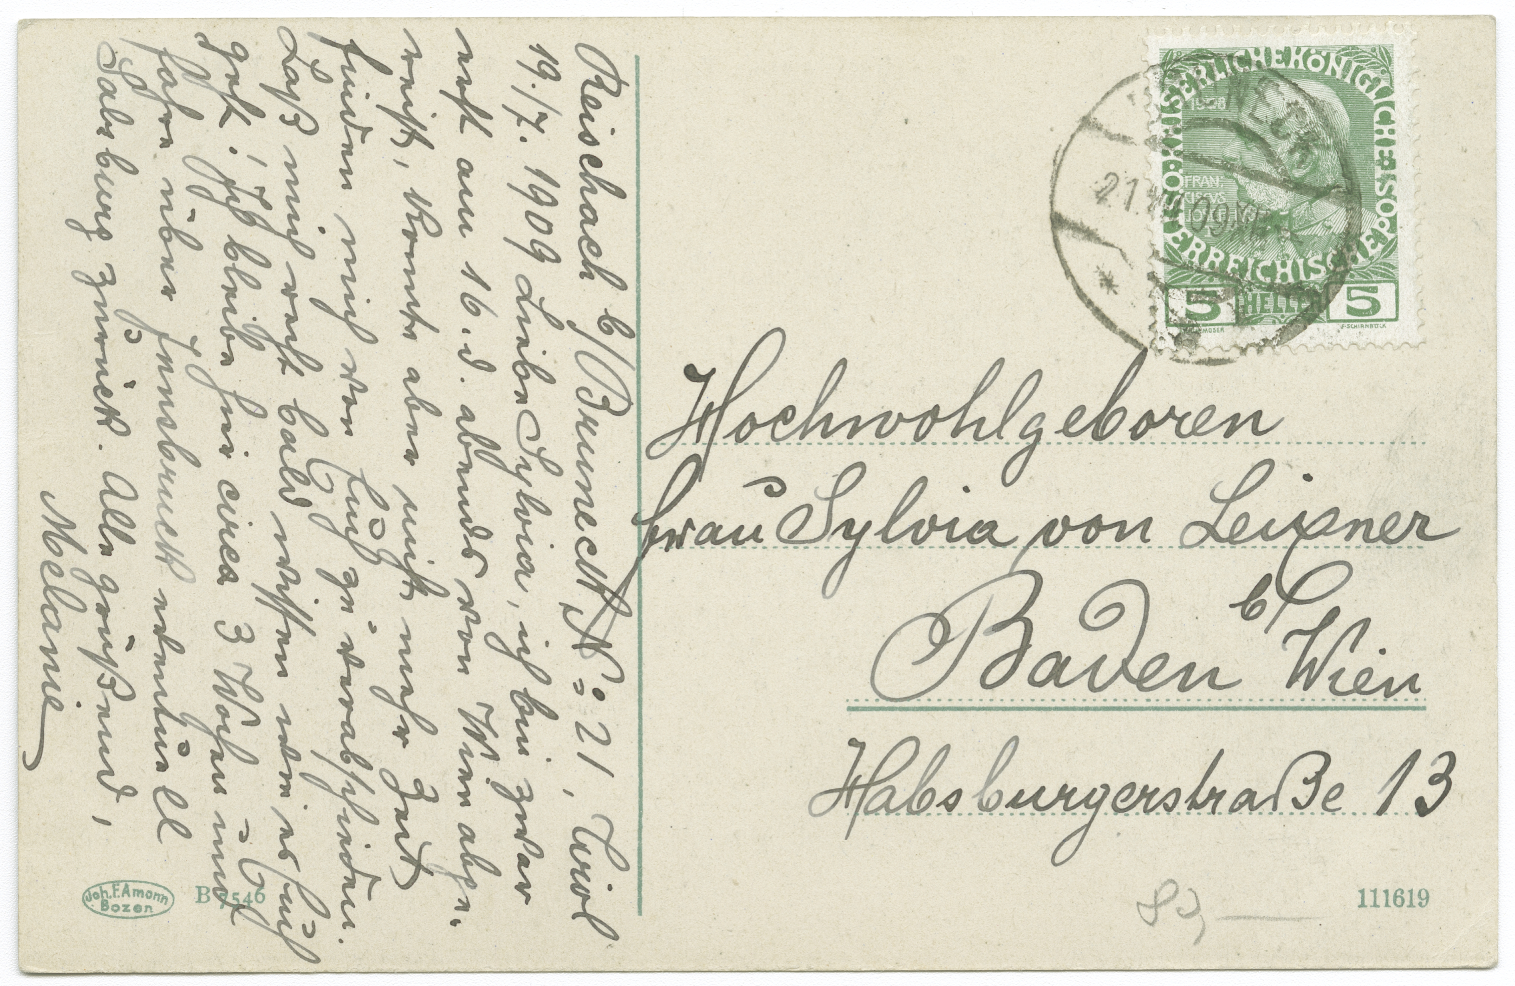 Reischach b/Bruneck No 21, Tirol
19./7. 1909 Liebe Sylvia, ich bin zwar
erst am 16. d. abends von Wien abge-
reist, konnte aber nicht mehr Zeit
finden mich von Euch zu verabschieden.
Laß mich recht bald wissen wie es Euch
geht! Ich bleibe hier circa 3 Wochen und
fahre über Innsbruck eventuell
Salzburg zurück. Alle grüßend,
Melanie
KAISERLICHE KÖNIGLICHE ÖSTERREICHISCHE POST
1908
FRAN-
CISCVS
5 HELLER 5
BRUNECK
21.VII.09
Hochwohlgeboren
Frau Sylvia von Leixner
Baden b/Wien
Habsburgerstraße 13
Joh. F. Amonn
Bozen
B 7546
111619